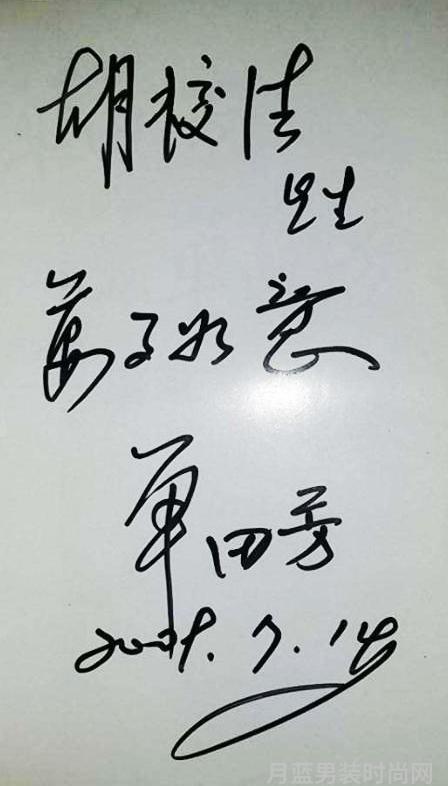 胡校佳
先生
万事如意
单田芳
2007.7.14
月蓝男装时尚网